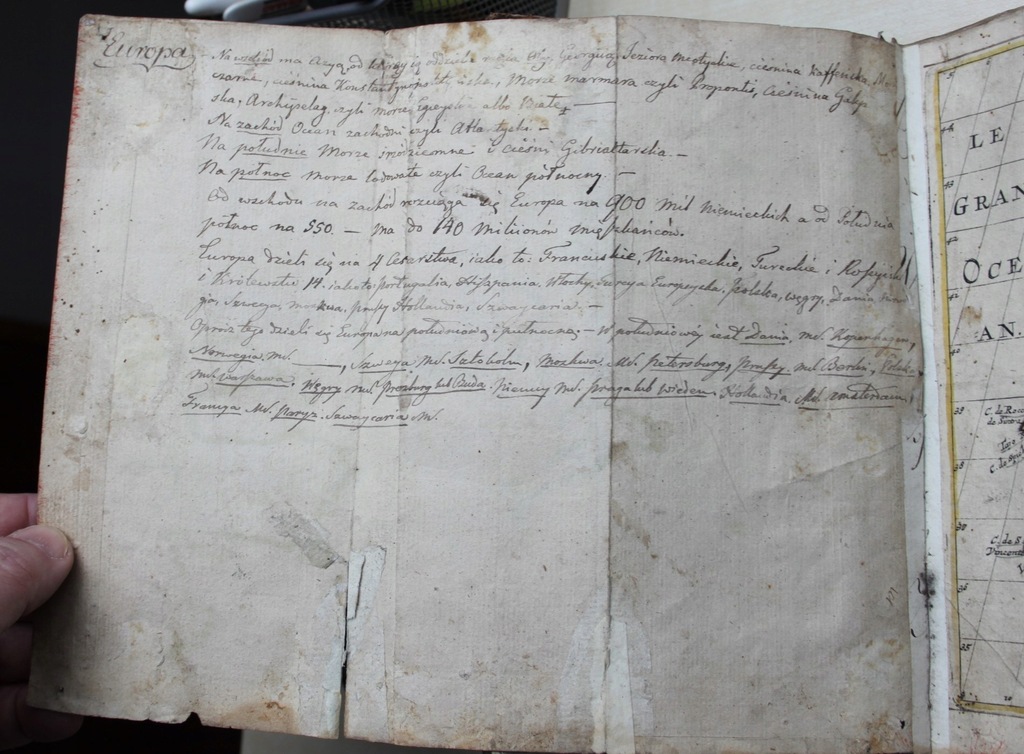 Europa
Na wschód ma Azyą od której ią oddziela Georgua, Jeziora meotyckie, cieśnina Kaffencka, Mo
czarne, cieśnina Konstantynopolitańska, Morze marmara czyli Propontis, Cieśnina Galip
ska, Archipelag czyli morze Egeyskie albo Białe —
Na zachód Ocean zachodni czyli Atlantycki. —
Na południe Morze śródziemne i cieśni Gibraltarska. —
Na północ Morze lodowate czyli Ocean północny. —
Od wschodu na zachód rozciąga się Europa na 900 mil Niemieckich a od Południa
północ na 550. — ma do 140 Millionów mieszkańców.
Europa dzieli się na 4 Cesarstwa, iako to: Francuskie, Niemieckie, Tureckie i Rossyis
i Królestw 14. iako to: portugalia, Hiszpania, Włochy, Turcya Europeyska, Polska, węgry, Dania, Norw
gia, Szwecya, moskwa, prusy Hollandia, Szwaycaria. —
Oprócz tego dzieli się Europa na południową i północną. — W południowey iest Dania, mS. Kopenhagen,
Norwegia, mS. —, Szwecya mS. Sztokolm, Moskwa mS. petersburg, Prussy, mS. Berlin, Polska
mS. warszawa, Węgry mS. Prezburg lub Buda, Niemcy mS. praga lub wieden Hollandia mS. amsterdam
Francya MS. Paryz. Szwaycaria M.
LE
GRAN
OCE
AN.
44
43
42
41
40
39
38
37
36
35
C. de Roc
C. de S
Vincent